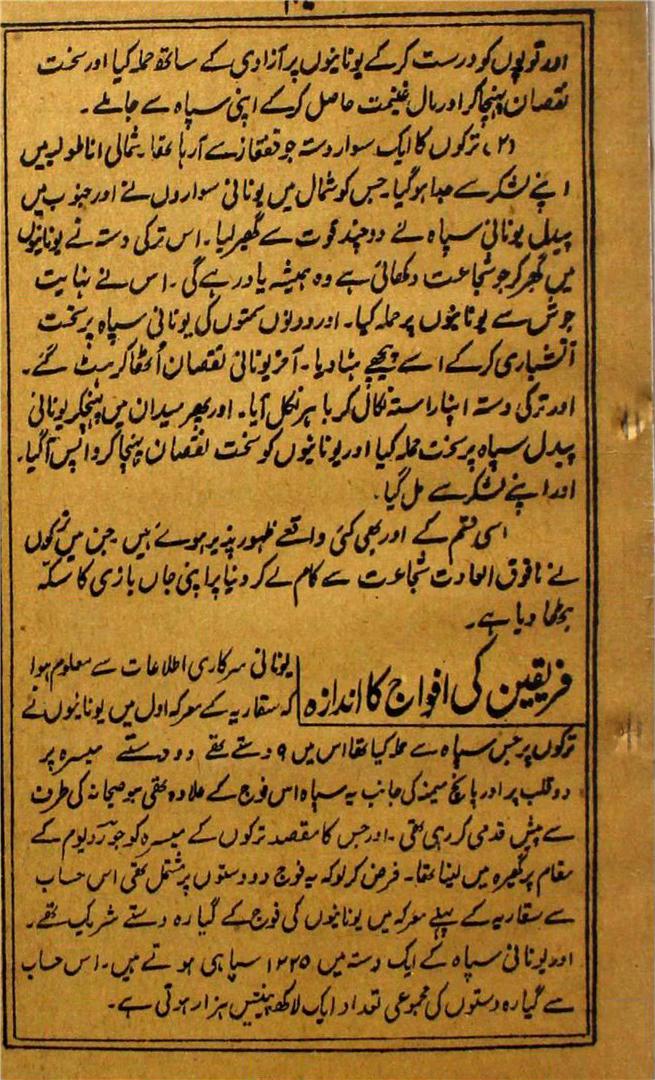 اور توپوں کو درست کر کے یونانیوں پر آزادی کے ساتھ حملہ کیا اور سخت
نقصان پہنچا کر اور مال غنیمت حاصل کر کے اپنی سپاہ سے جا ملے۔
(۲) ترکوں کا ایک سوار دستہ جو قفقاز سے آ رہا تھا۔ شمالی اناطولیہ میں
اپنے لشکر سے جدا ہو گیا جس کو شمال میں یونانی سواروں نے اور جنوب میں
پیدل یونانی سپاہ نے دو چند قوت سے گھیر لیا۔ اس ترکی دستہ نے یونانیوں
میں گھِر کر جو شجاعت دکھائی ہے وہ ہمیشہ یاد رہے گی۔ اس نے نہایت
جوش سے یونانیوں پر حملہ کیا۔ اور دونوں سمتوں کی یونانی سپاہ پر سخت
آتشباری کر کے اسے پیچھے ہٹا دیا۔ آخر یونانی نقصان اُٹھا کر ہٹ گئے۔
اور ترکی دستہ اپنا راستہ نکال کر باہر نکل آیا۔ اور پھر میدان میں پہنچکر یونانی
پیدل سپاہ پر سخت حملہ کیا اور یونانیوں کو سخت نقصان پہنچا کر واپس آ گیا۔
اور اپنے لشکر سے مل گیا۔
اسی قسم کے اور بھی کئی واقعے ظہور پذیر ہوئے ہیں جن میں ترکوں
نے مافوق العادت شجاعت سے کام لے کر دنیا پر اپنی جاں بازی کا سکہ
بٹھا دیا ہے۔
فریقین کی افواج کا اندازہ
یونانی سرکاری اطلاعات سے معلوم ہوا
کہ سقاریہ کے معرکہ اول میں یونانیوں نے
ترکوں پر جس سپاہ سے حملہ کیا تھا اس میں ۹ دستے تھے دو دستے میسرہ پر
دو قلب پر اور پانچ میمنہ کی جانب یہ سپاہ اس فوج کے علاوہ تھی جو صیحانہ کی طرف
سے پیش قدمی کر رہی تھی۔ اور جس کا مقصد ترکوں کے میسرہ کو جوردیوم کے
مقام پر گھیرہ میں لینا تھا۔ فرض کر لو کہ یہ فوج دو دستوں پر مشتمل تھی اس حساب
سے سقاریہ کے پہلے معرکہ میں یونانیوں کی فوج کے گیارہ دستے شریک تھے۔
اور یونانی سپاہ کے ایک دستہ میں ۱۲۲۵ سپاہی ہوتے ہیں۔ اس حساب
سے گیارہ دستوں کی مجموعی تعداد ایک لاکھ پینتیس ہزار ہوتی ہے۔